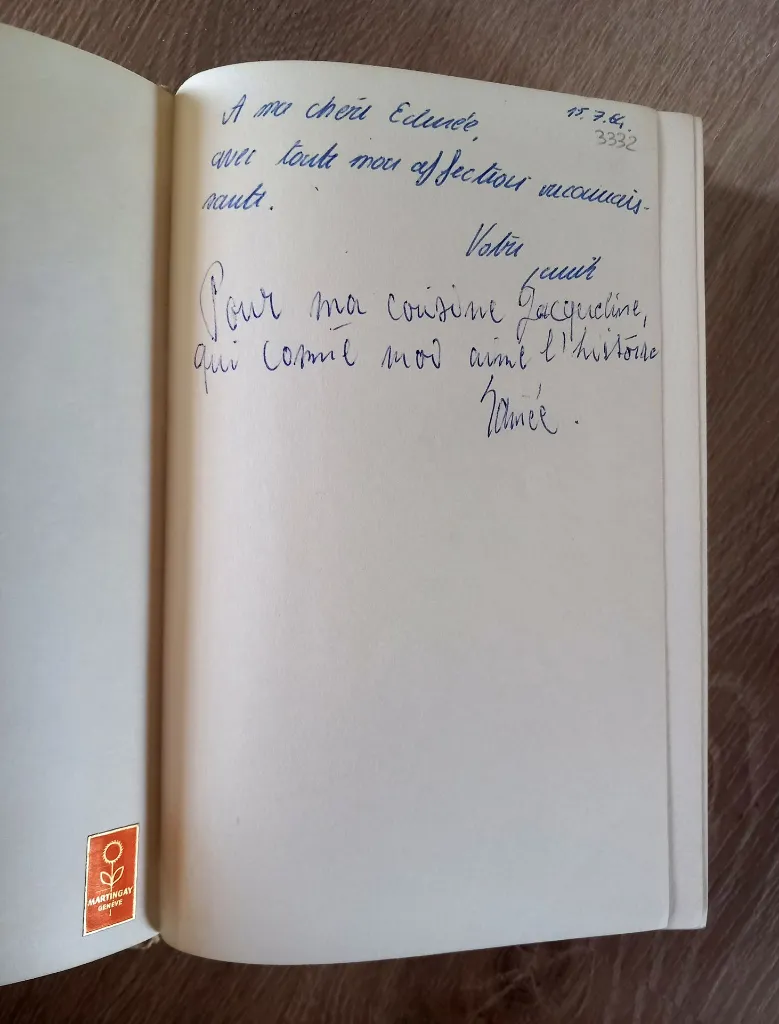 A ma chère Edmée,
15.7.64.
3332
avec toute mon affection reconnais-
sante.
Votre
Pour ma cousine Jacqueline,
qui comme moi aime l'histoire
Edmée.
MARTINGAY
GENÈVE